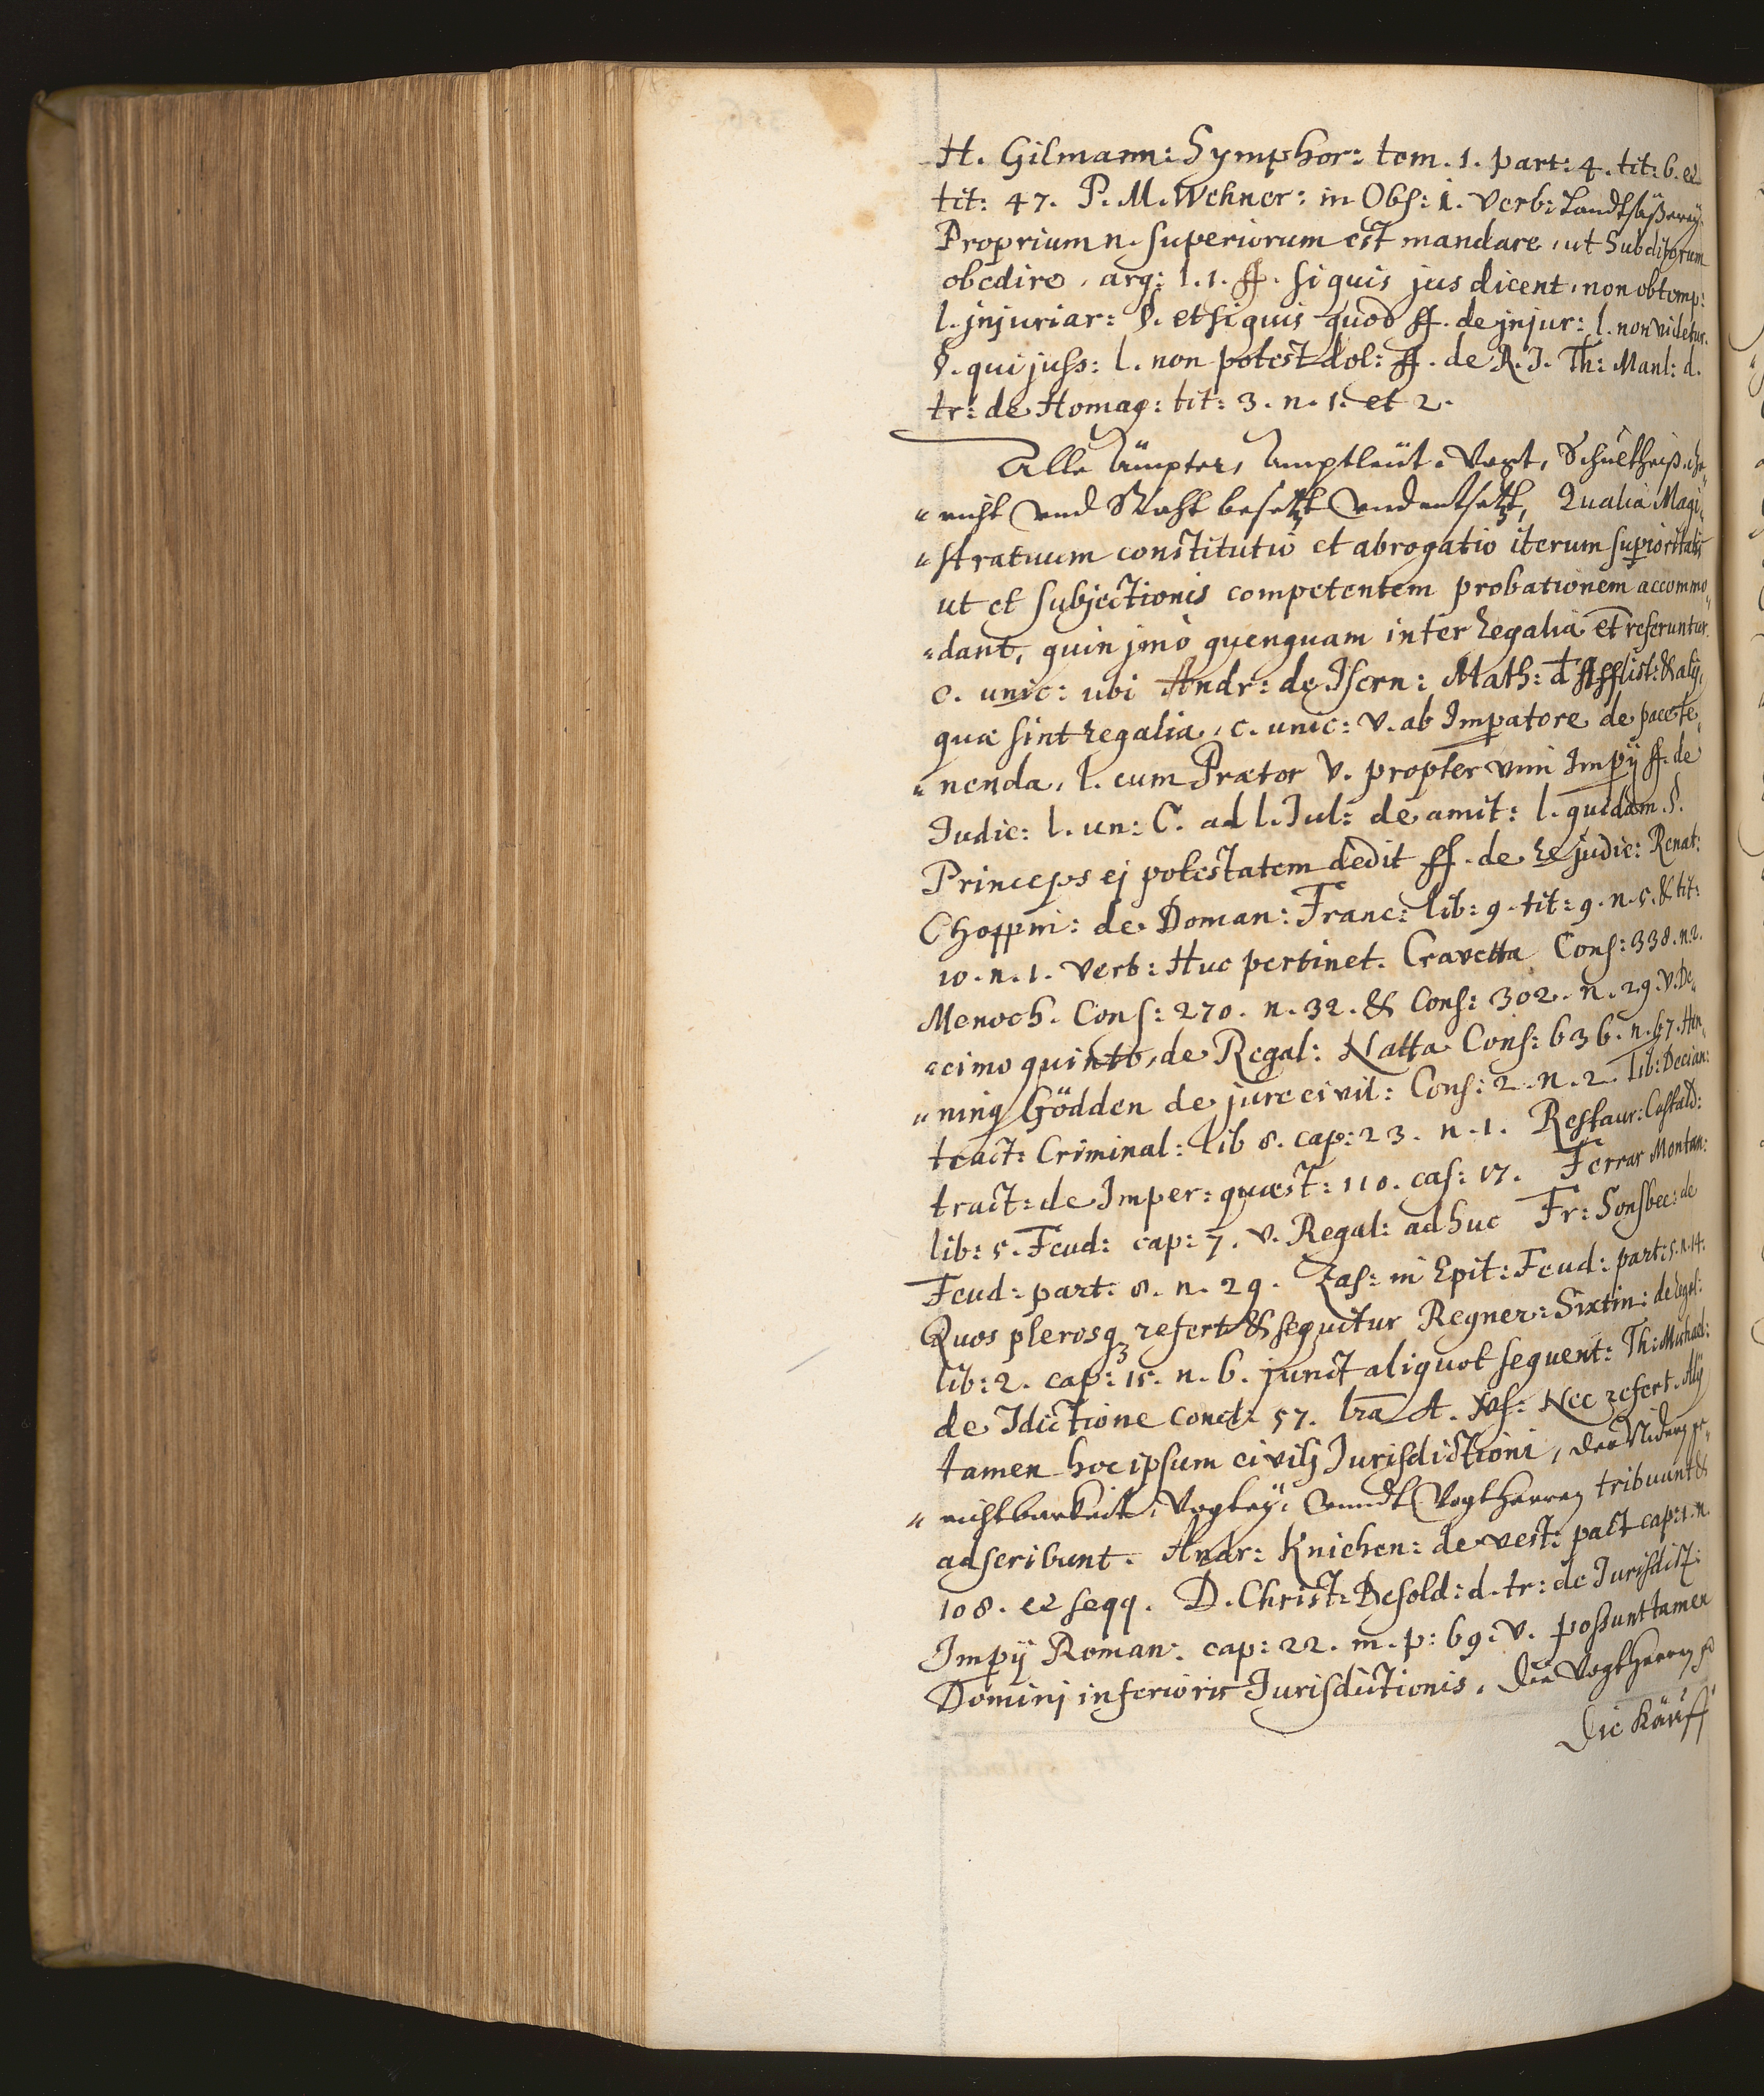 H. Gilmann: Symphor: tom. 1. part: 4. tit: 6. et
tit: 47. P. M. Wehner: in Obs: i. verb: Landtsäßereӱ.
Proprium n. superiorum est mandare, ut Subditorum
obedire, arg: l. 1. ff. si quis jus dicent, non obtemp:
l. jnjuriar: §. et si quis quod ff. de jnjur: l. non videtur.
§. qui juss: l. non potest dol: ff. de R. J. Th: Manl: d.
tr: de Homag: tit: 3. n. 1. et 2.
Alle Ämpter, Amptleüt, Vogt, Schultheiß, Ge„
„richt und Raht besetzt und entsetzt, Qualia Magi„
„stratuum constitutio et abrogatio iterum superioritatis
ut et subjectionis competentem probationem accommo„
„dant, quin jmò quenquam inter regalia et referuntur.
c. unic: ubi Andr: de Isern: Math: d' Afflict: & alij,
quæ sint regalia, c. unic: v. ab Impatore de pace te„
„nenda, l. cum Prætor v. propter vim Impij ff. de
Iudic: l. un: C. ad l. Jul: de amit: l. quidam §.
Princeps ej potestatem dedit ff. de re judic: Renat:
Choppin: de Doman: Franc: lib: 9. tit: 9. n. 5. & tit:
10. n. 1. verb: Huc pertinet. Cravetta Cons: 338. n. 2.
Menoch. Cons: 270. n. 32. & Cons: 302. n. 29. v. De„
„cimo quinto, de Regal: Natta Cons: 636. n. 67. Hen„
„ning Gödden de jure civil: Cons: 2. n. 2. Tib: Decian:
tract: Criminal: lib 8. cap: 23. n. 1. Restaur: Castald:
tract: de Imper: quæst: 110. cas: 17. Ferrar Montan:
lib: 5. Feud: cap: 7. v. Regal: adhuc Fr: Sonsbec: de
Feud: part: 8. n. 29. Zas: in Epit: Feud: part: 5. n. 14:
Quos plerosq3 refert & sequitur Regner: Sixtin: de regal:
lib: 2. cap: 15. n. 6. junct aliquot sequent: Th: Michael:
de Jdictione concl: 57. lra A. vs: Nec refert. Alij
tamen hoc ipsum civilj Jurisdictioni, der Nidern ge„
„richtbarkeit, Vogteӱ, unndt Vogtherren tribuunt &
adscribunt. Andr: Knichen: de vest: pact cap: 1. n.
108. et seqq. D. Christ: Besold: d. tr: de Jurisdict:
Impij Roman: cap: 22. m. p: 69. v. possunt tamen
Dominj inferioris Jurisdictionis. Die Vogtherren
Die Käuff